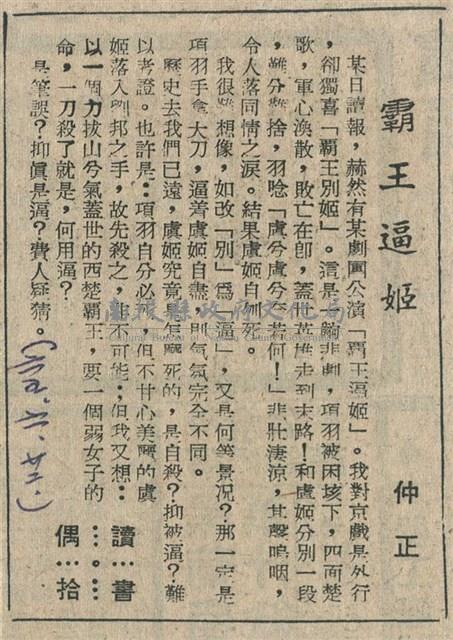 霸王逼姬
仲正
某日讀報，赫然有某劇團公演「霸王逼姬」。我對京戲是外行
，卻獨喜「霸王別姬」。這是一齣悲劇，項羽被困垓下，四面楚
歌，軍心渙散，敗亡在卽，蓋世英雄走到末路！和虞姬分別一段
，難分難捨，羽唸「虞兮虞兮奈若何！」悲壯凄涼，其聲嗚咽，
令人落同情之淚。結果虞姬自刎死。
我很難想像，如改「別」爲「逼」，又是何等景況？那一定是
項羽手拿大刀，逼着虞姬自盡，則氣氛完全不同。
歷史去我們已遠，虞姬究竟怎麼死的，是自殺？抑被逼？難
以考證。也許是：項羽自分必死，但不甘心美麗的虞
姬落入劉邦之手，故先殺之，不可能；但我又想：
以一個力拔山兮氣蓋世的西楚霸王，要一個弱女子的
命，一刀殺了就是，何用逼？
是筆誤？抑眞是逼？費人疑猜。
讀…書
…。…
偶…拾
南投縣政府文化局
Cultural Bureau of Nantou County Government